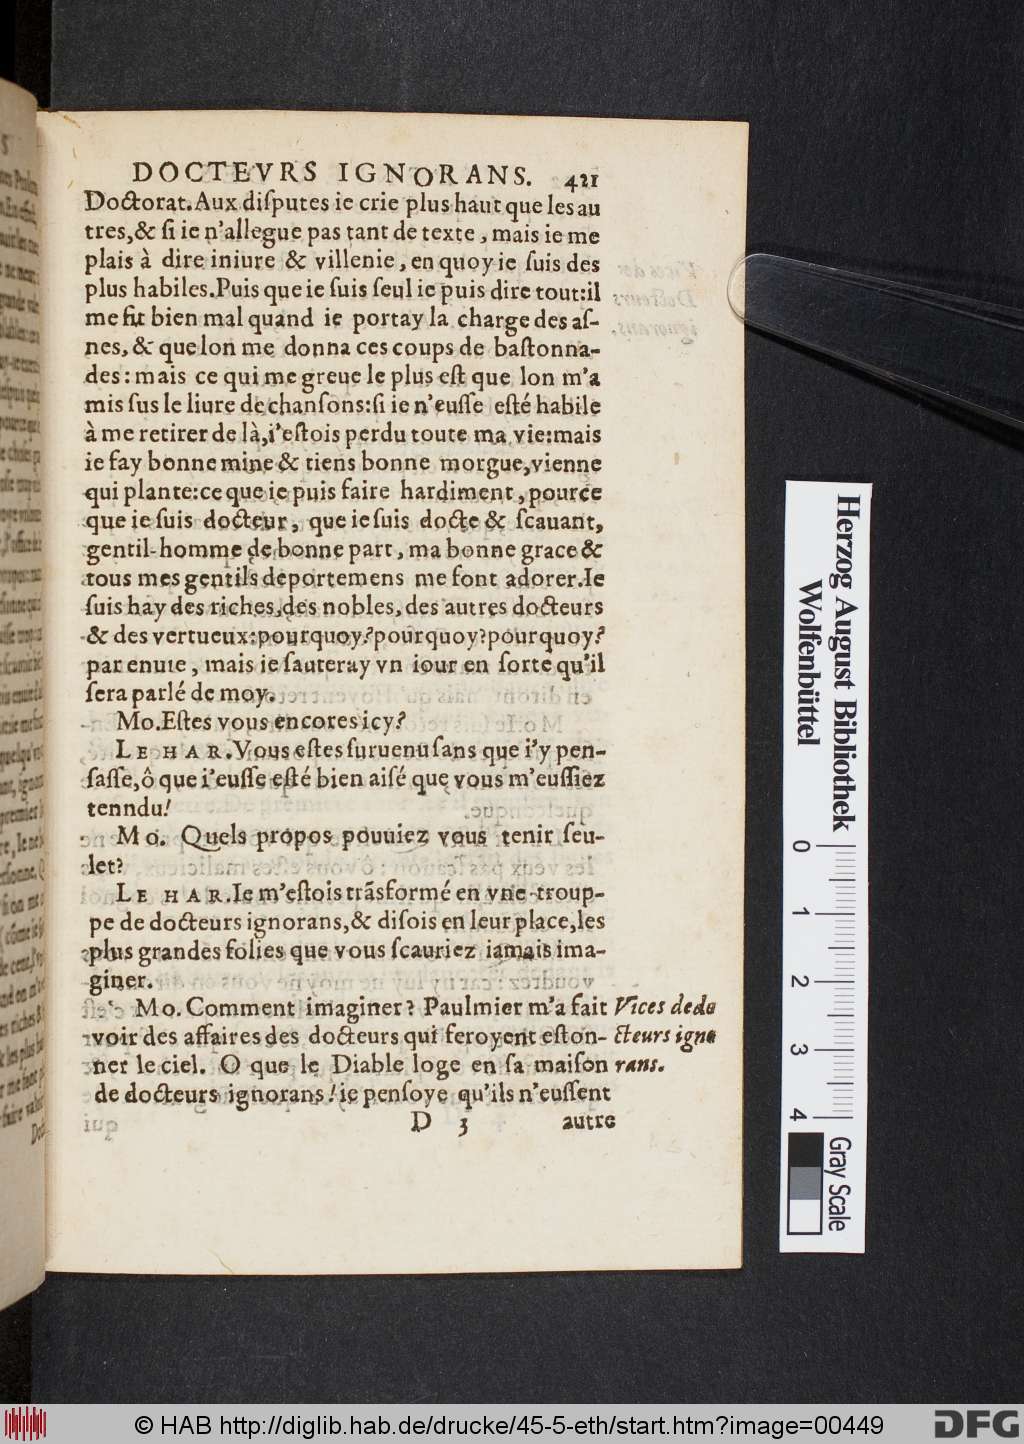 DOCTEVRS IGNORANS. 421
Doctorat.Aux diſputes ie crie plus haut que les au
tres,& ſi ie n'allegue pas tant de texte, mais ie me
plais à dire iniure & villenie, en quoy ie ſuis des
plus habiles.Puis que ie ſuis ſeul ie puis dire tout:il
me fit bien mal quand ie portay la charge des aſ-
nes, & que lon me donna ces coups de baſtonna-
des: mais ce qui me greue le plus eſt que lon m'a
mis ſus le liure de chanſons:ſi ie n'euſſe eſté habile
à me retirer de là,i'eſtois perdu toute ma vie:mais
ie fay bonne mine & tiens bonne morgue,vienne
qui plante:ce que ie puis faire hardiment, pource
que ie ſuis docteur, que ie ſuis docte & ſcauant,
gentil-homme de bonne part, ma bonne grace &
tous mes gentils deportemens me font adorer.Ie
ſuis hay des riches,des nobles, des autres docteurs
& des vertueux:pourquoy?pourquoy?pourquoy?
par enuie, mais ie ſauteray vn iour en ſorte qu'il
ſera parlé de moy.
Mo.Eſtes vous encores icy?
LE HAR.Vous eſtes ſuruenu ſans que i'y pen-
ſaſſe,ô que i'euſſe eſté bien aiſé que vous m'euſſiez
tenndu!
Mo. Quels propos pouuiez vous tenir ſeu-
let?
LE HAR.Ie m'eſtois trãsformé en vne troup-
pe de docteurs ignorans,& diſois en leur place,les
plus grandes folies que vous ſcauriez iamais ima-
giner.
Mo. Comment imaginer? Paulmier m'a fait
voir des affaires des docteurs qui feroyent eſton-
ner le ciel. O que le Diable loge en ſa maiſon
de docteurs ignorans! ie penſoye qu'ils n'euſſent
Vices de do
cteurs igno
rans.
D 3 autre
Herzog August Bibliothek
Wolfenbüttel
0 1 2 3 4
Gray Scale
© HAB http://diglib.hab.de/drucke/45-5-eth/start.htm?image=00449
DFG